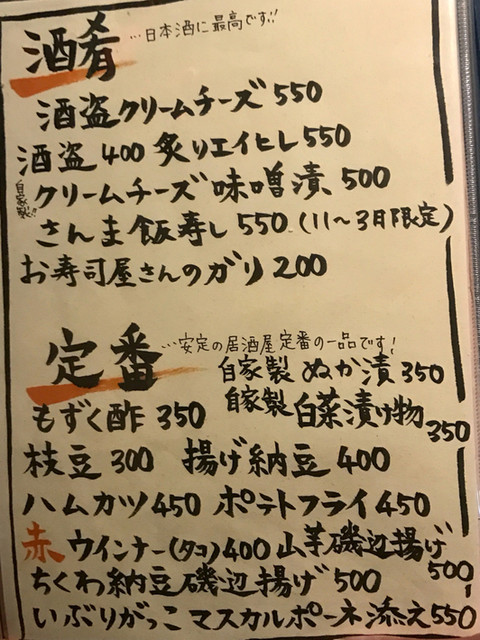 酒肴 …日本酒に最高です!!
酒盗クリームチーズ 550
酒盗 400 炙りエイヒレ 550
自家製!! クリームチーズ味噌漬 500
さんま飯寿し 550 (11〜3月限定)
お寿司屋さんのガリ 200
定番 …安定の居酒屋定番の一品です!
自家製 ぬか漬 350
もずく酢 350 自家製 白菜漬け物 350
枝豆 300 揚げ納豆 400
ハムカツ 450 ポテトフライ 450
赤ウインナー(タコ) 400 山芋磯辺揚げ 500
ちくわ納豆磯辺揚げ 500
いぶりがっこマスカルポーネ添え 550